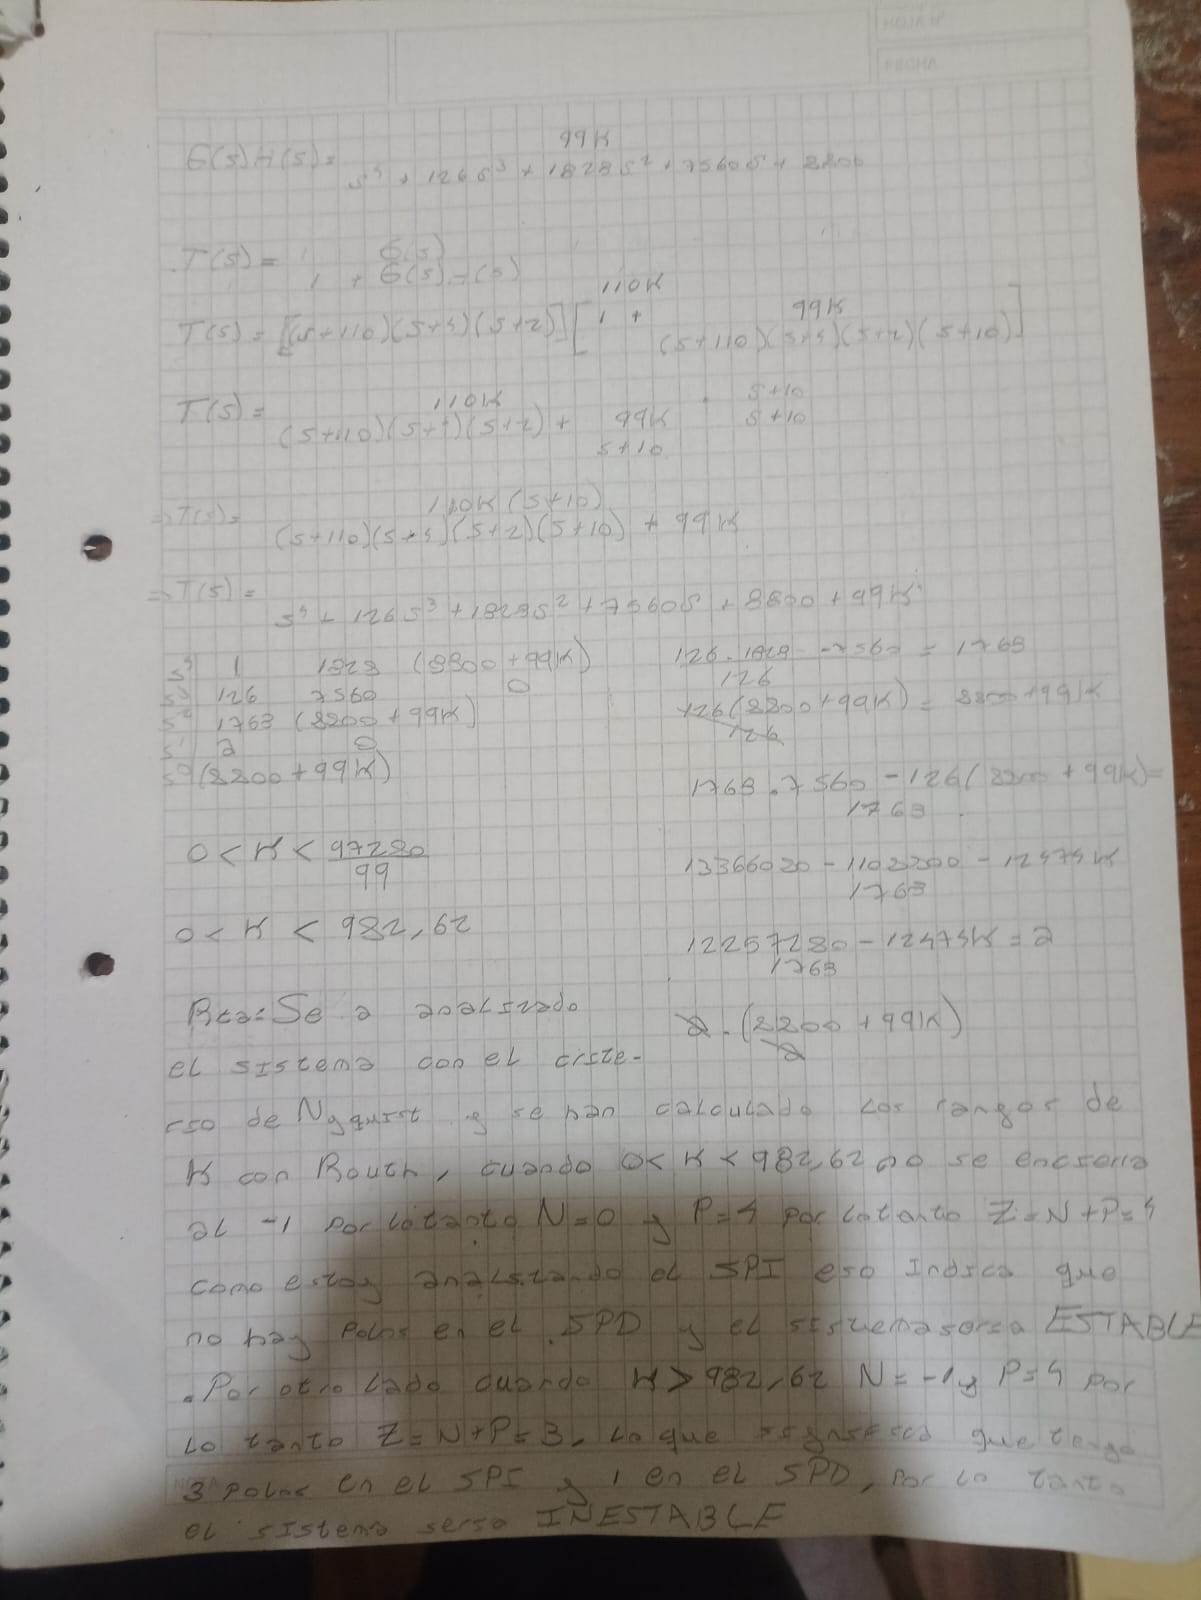 HOJA Nº
FECHA
G(s)H(s) = 99K
s⁴ + 126s³ + 1828s² + 7560s + 8800
T(s) = G(s)
1 + G(s)-(s)
110K
T(s) = [(s+110)(s+4)(s+2)] [1 + 99K
(s+110)(s+4)(s+2)(s+10)]
T(s) = 110K
(s+110)(s+4)(s+2) + 99K . s+10
s+10 s+10
=> T(s) = 110K(s+10)
(s+110)(s+4)(s+2)(s+10) + 99K
=> T(s) =
s⁴ + 126s³ + 1828s² + 7560s + 8800 + 99K
s⁴ 1 1828 (8800+99K)
s³ 126 7560 0
s² 1768 (8800+99K)
s¹ a 0
s⁰ (8800+99K)
126.1828 - 7560 = 1768
126
126(8800+99K) = 8800+99K
126
1768.7560 - 126(8800+99K) =
1768
13366080 - 1108800 - 12474K
1768
12257280 - 12474K = a
1768
a.(8800+99K)
a
0 < K < 97280
99
0 < K < 982,62
Rta: Se a analizado
el sistema con el crite-
rio de Nyquist y se han calculado los rangos de
K con Routh, cuando 0<K<982,62 no se encierra
al -1 por lo tanto N=0 y P=4 por lo tanto Z=N+P=4
como estoy analizando el SPI eso indica que
no hay polos en el SPD y el sistema seria ESTABLE
. Por otro lado cuando K>982,62 N=-1 y P=4 por
lo tanto Z=N+P=3, lo que significa que tengo
3 polos en el SPI y 1 en el SPD, por lo tanto
el sistema seria INESTABLE